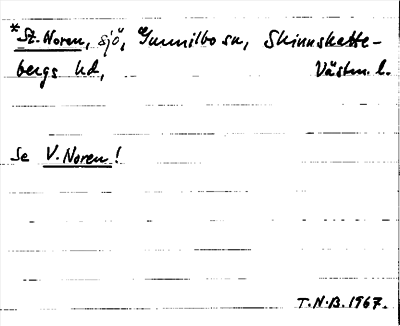 *St. Noren, sjö, Gunnilbo sn, Skinnskatte-
bergs hd, Västm. l.
Se V. Noren!
T.N.B. 1967.